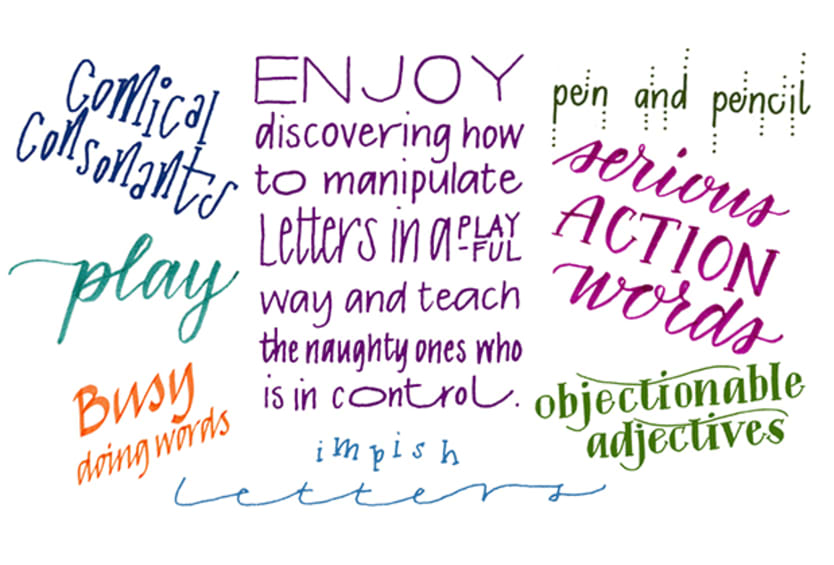 Comical
Consonants
play
Busy
doing words
ENJOY
discovering how
to manipulate
Letters in a PLAY
-FUL
way and teach
the naughty ones who
is in control.
impish
letters
pen and pencil
serious
ACTION
words
objectionable
adjectives